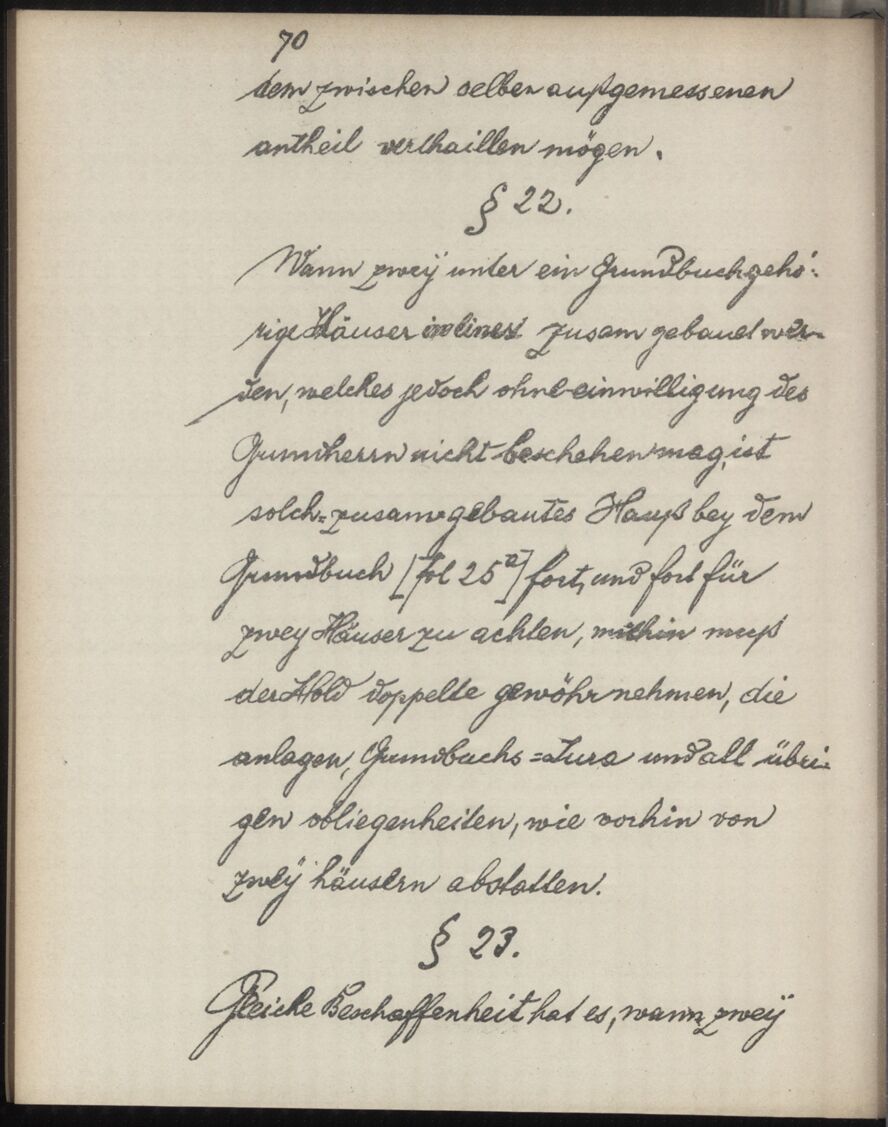 70
dem zwischen selben außgemessenen
antheil verthaillen mögen.
§ 22.
Wann zweÿ unter ein Grundbuch gehö:
rige Häuser in eines zusam gebauet wer-
den, welches jedoch ohne einwilligung des
Grundherrn nicht beschehen mag, ist
solch=zusam gebautes Hauß bey dem
Grundbuch [fol 25a] fort, und fort für
zwey Häuser zu achten, mithin muß
der Hold doppelte gewöhr nehmen, die
anlagen, Grundbuchs=Jura und all übri=
gen obliegenheiten, wie vorhin von
zweÿ häusern abstatten.
§ 23.
Gleiche Beschaffenheit hat es, wann zweÿ